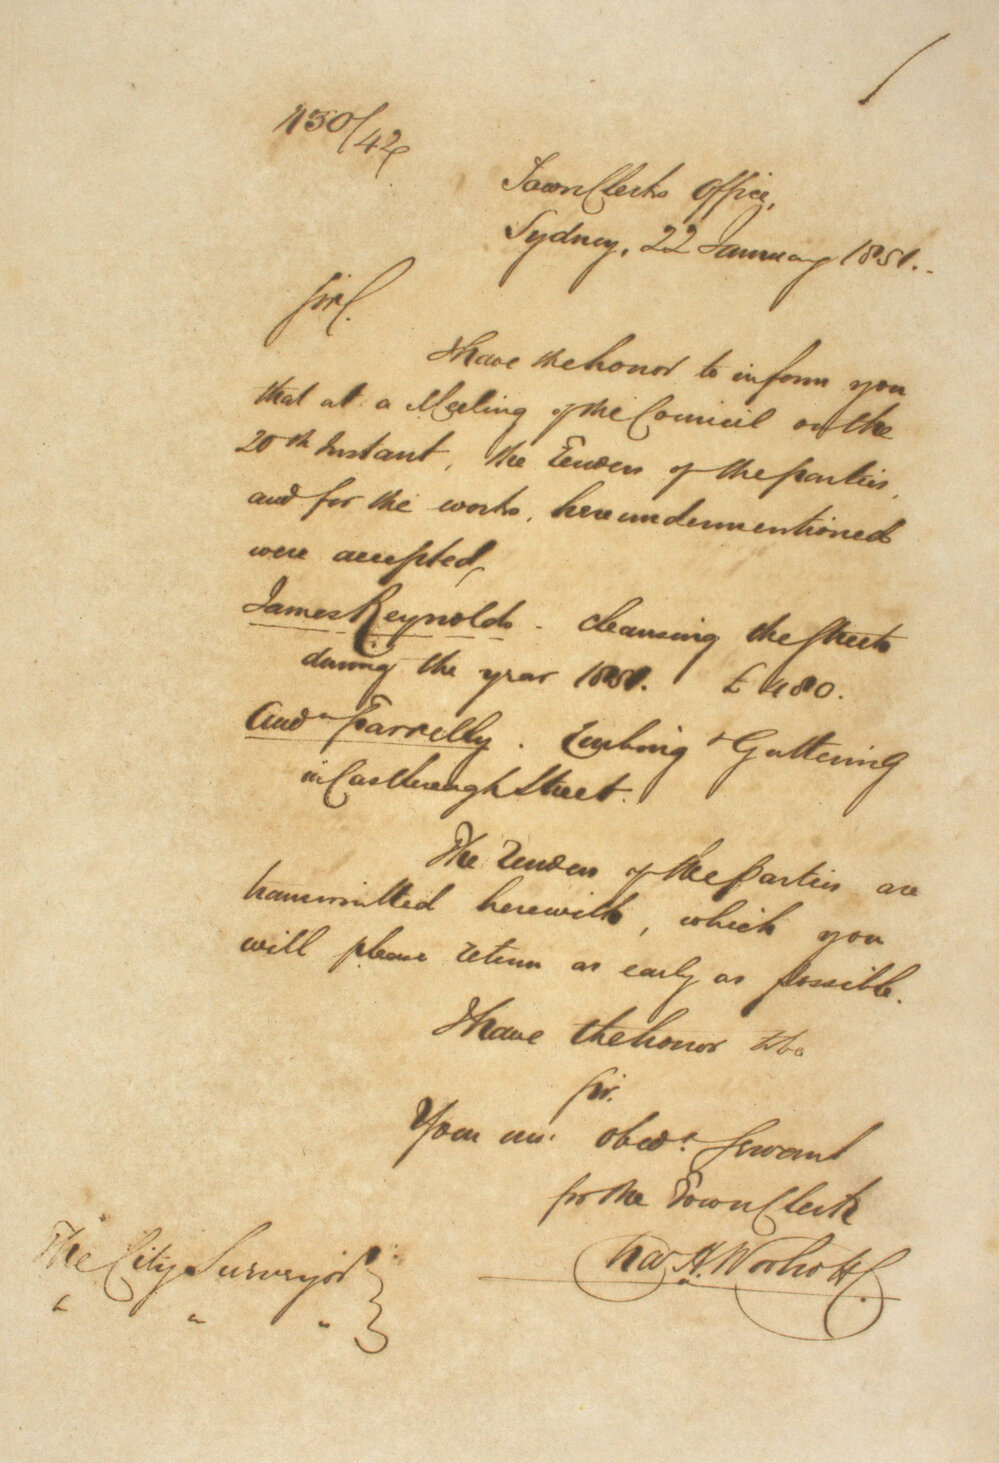 Town Clerks Office,
Sydney, 22 January 1851.
Sir,
I have the honor to inform you
that at a Meeting of the Council on the
20th Instant, the Tenders of the parties,
and for the works, hereundermentioned
were accepted,
James Reynolds. cleansing the Streets
during the year 1851. £480.
Andw Farrelly. Kurbing & Guttering
in Castlereagh Street.
The Tenders of the Parties are
transmitted herewith, which you
will please return as early as possible.
I have the honor to be
Sir.
Your obedt. Servant
for the Town Clerk
Chas H. Woolcott
The City Surveyor
" " "